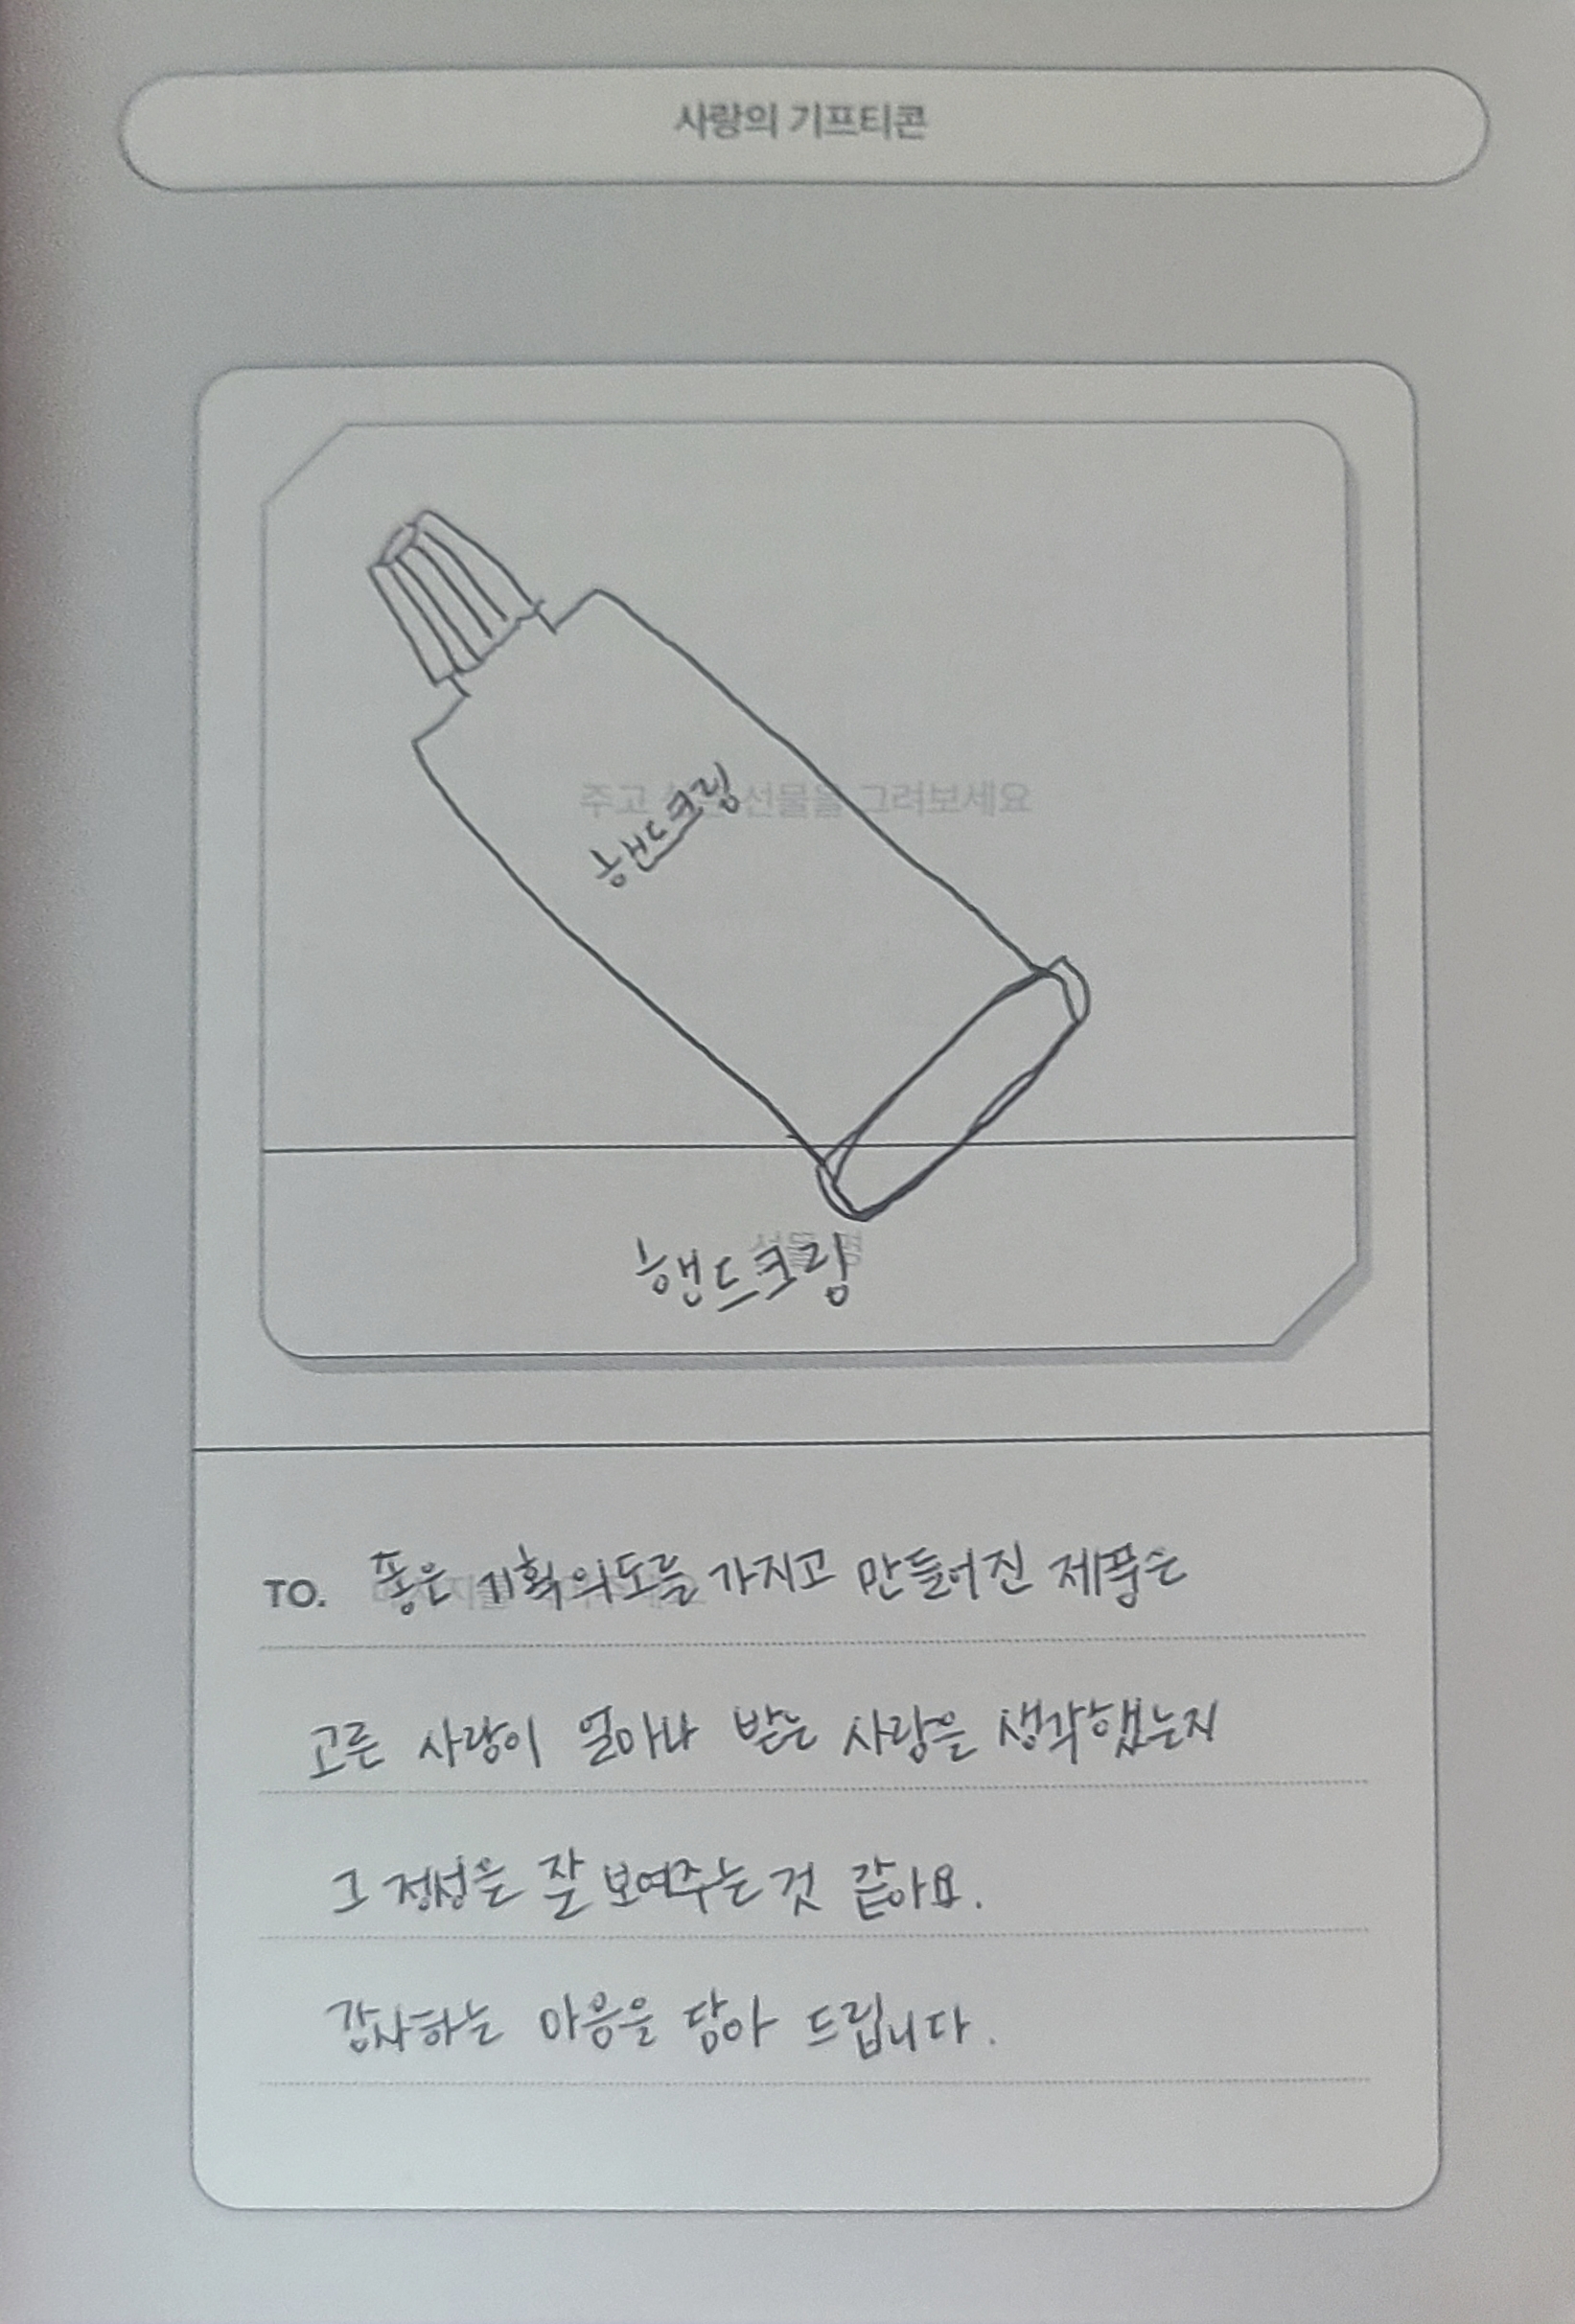 사랑의 기프티콘
주고 싶은 선물을 그려보세요
핸드크림
선물명
핸드크림
TO. 좋은 기획의도를 가지고 만들어진 제품은
고른 사람이 얼마나 받는 사람을 생각했는지
그 정성을 잘 보여주는 것 같아요.
감사하는 마음을 담아 드립니다.